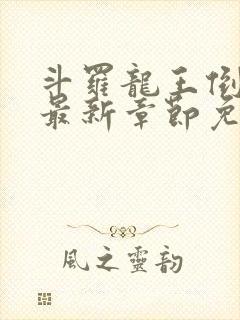 斗羅龍王
最新章節免
風之靈韵